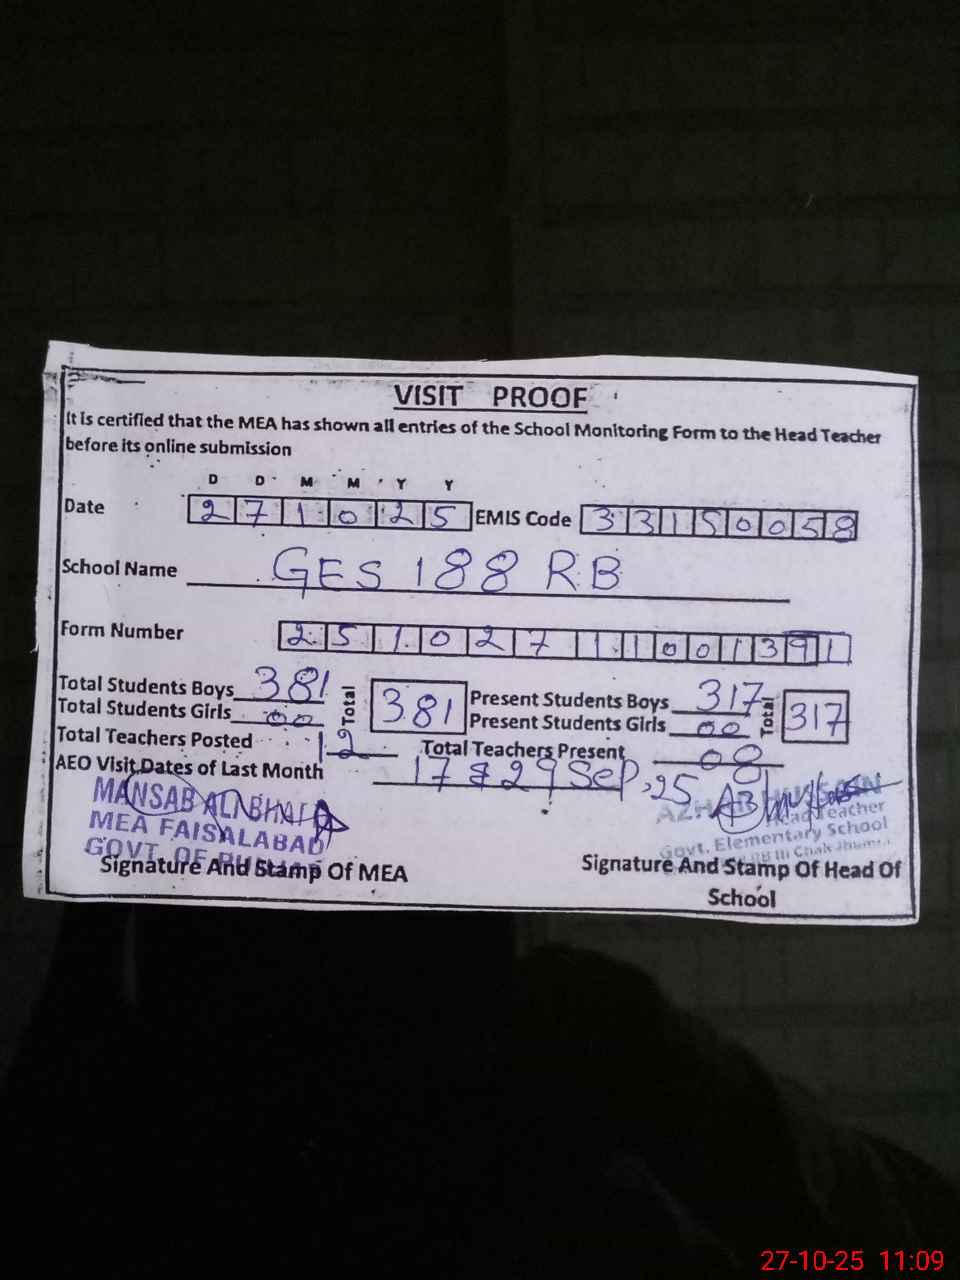 VISIT PROOF
It is certified that the MEA has shown all entries of the School Monitoring Form to the Head Teacher
before its online submission
D D M M Y Y
Date 27 10 25 EMIS Code 33150058
School Name GES 188 RB
Form Number 25102711001391
Total Students Boys 381 Total 381 Present Students Boys 317 Total 317
Total Students Girls 00 Present Students Girls 00
Total Teachers Posted 12 Total Teachers Present 08
AEO Visit Dates of Last Month 17 & 29 Sep, 25
MANSAB ALI
MEA FAISALABAD
GOVT. OF
Signature And Stamp Of MEA
AZHAR HUSSAIN
Head Teacher
Govt. Elementary School
RB III Chak Jhumra
Signature And Stamp Of Head Of
School
27-10-25 11:09